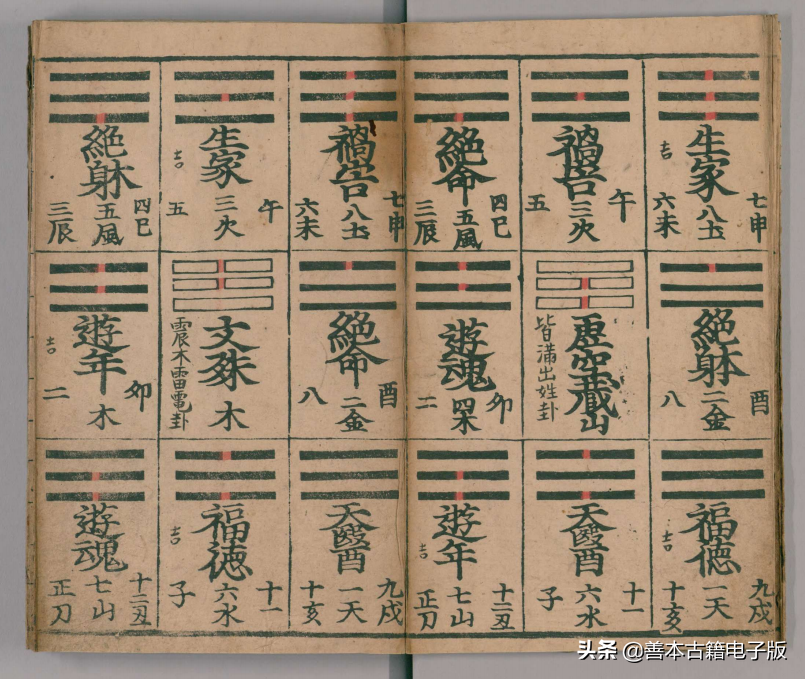 七申
生家
八土
吉
六未
午
禍害
三火
五
四巳
絶命
五風
三辰
酉
絶躰
二金
八
虚空藏
山
皆滿出姓卦
卯
遊魂
四木
二
九戌
福德
一天
吉
十亥
十一
天醫
六水
子
十二丑
遊年
七山
吉
正刀
七申
禍害
八土
六未
午
生家
三火
吉
五
四巳
絶躰
五風
三辰
酉
絶命
二金
八
文殊
木
震木雷電卦
卯
遊年
木
吉
二
九戌
天醫
一天
十亥
十一
福徳
六水
吉
子
十二丑
遊魂
七山
正刀
头条 @善本古籍电子版